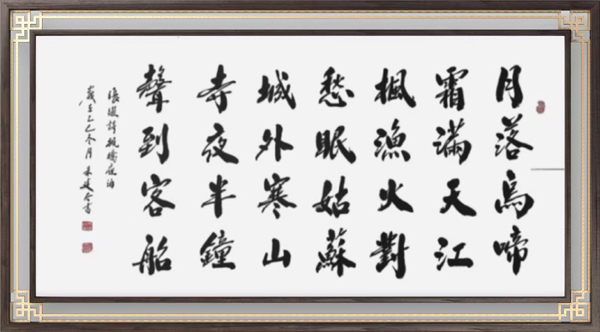 月落烏啼
霜滿天江
楓漁火對
愁眠姑蘇
城外寒山
寺夜半鐘
聲到客船
張繼詩楓橋夜泊
歲在乙巳冬月 書